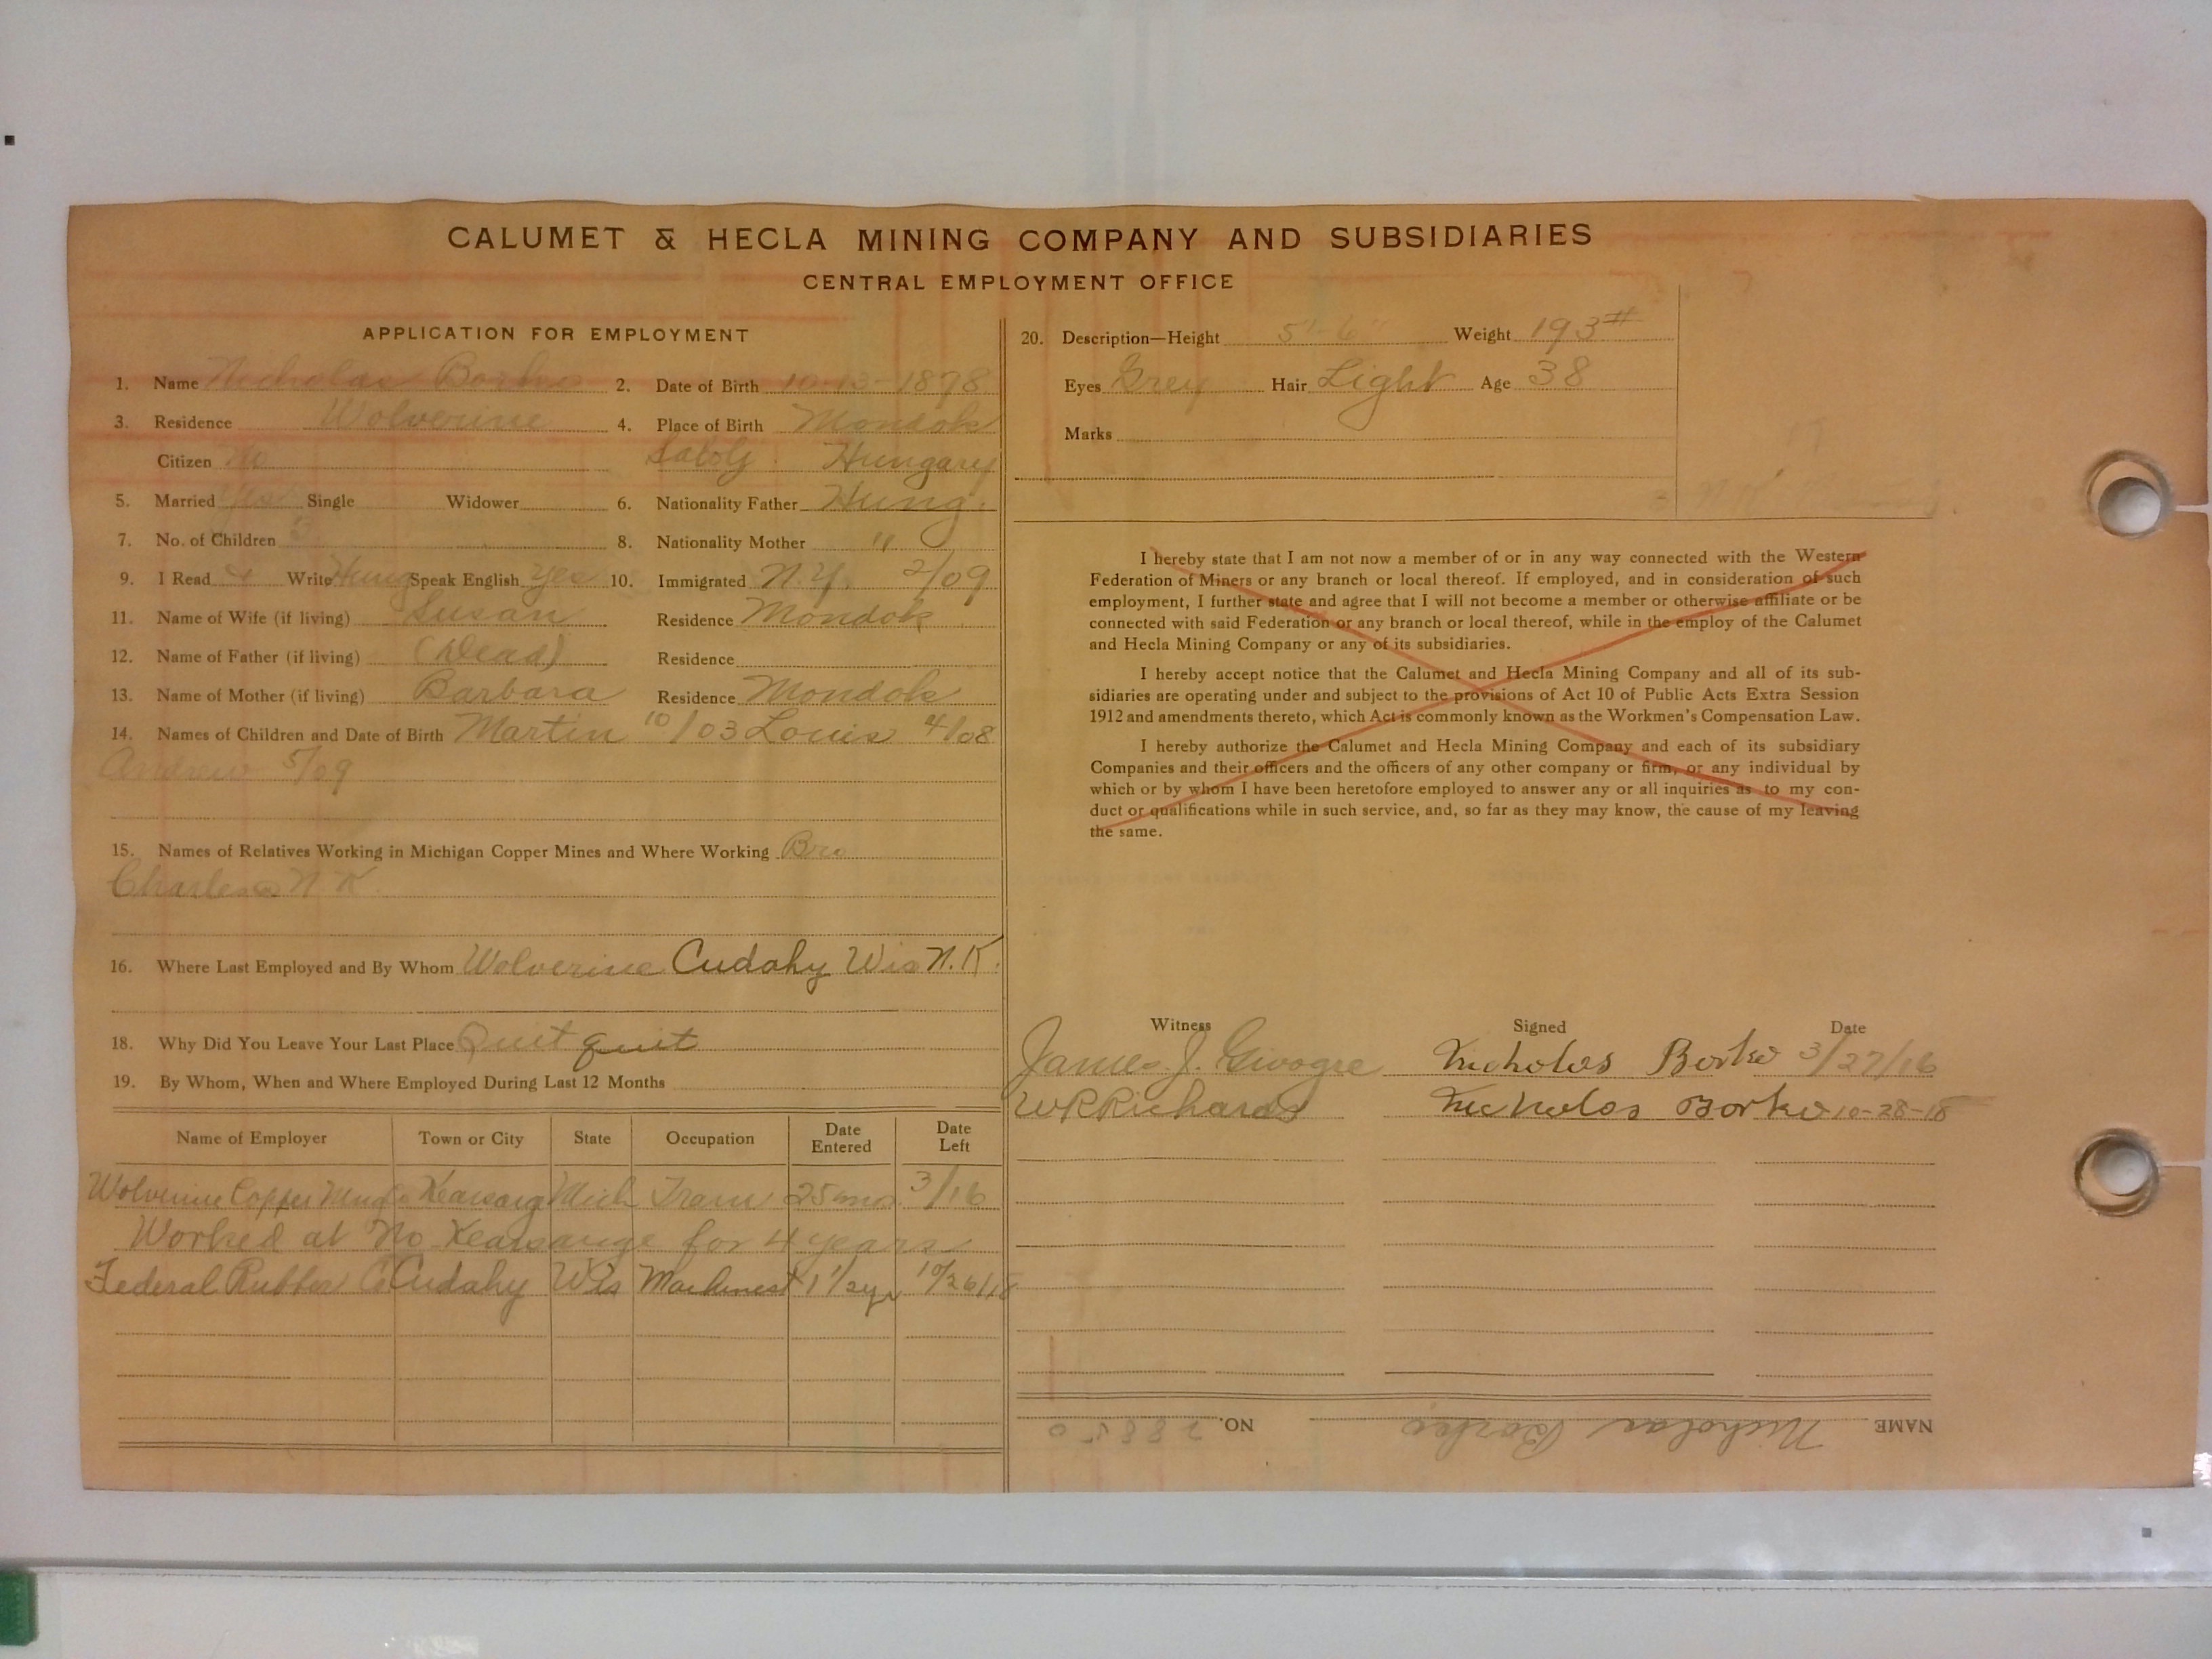 CALUMET & HECLA MINING COMPANY AND SUBSIDIARIES
CENTRAL EMPLOYMENT OFFICE
APPLICATION FOR EMPLOYMENT
1. Name Nicholas Borko 2. Date of Birth 10-13-1878
3. Residence Wolverine 4. Place of Birth Mondok
Citizen no Hungary
5. Married yes Single Widower 6. Nationality Father Hung.
7. No. of Children 3 8. Nationality Mother "
9. I Read & Write Hung Speak English yes 10. Immigrated N.Y. 2/09
11. Name of Wife (if living) Susan Residence Mondok
12. Name of Father (if living) (Dead) Residence
13. Name of Mother (if living) Barbara Residence Mondok
14. Names of Children and Date of Birth Martin 10/03 Louis 4/08
Andrew 5/09
15. Names of Relatives Working in Michigan Copper Mines and Where Working Bro
Charles N K
16. Where Last Employed and By Whom Wolverine Cudahy Wis N.K.
18. Why Did You Leave Your Last Place Quit quit
19. By Whom, When and Where Employed During Last 12 Months
Name of Employer Town or City State Occupation Date Entered Date Left
Wolverine Copper Mng Co Kearsarge Mich Tram 25 mos. 3/16
Worked at No Kearsarge for 4 years
Federal Rubber Co Cudahy Wis Machinest 1 1/2 yr 10/26/18
20. Description—Height 5'-6" Weight 193#
Eyes Grey Hair Light Age 38
Marks
I hereby state that I am not now a member of or in any way connected with the Western
Federation of Miners or any branch or local thereof. If employed, and in consideration of such
employment, I further state and agree that I will not become a member or otherwise affiliate or be
connected with said Federation or any branch or local thereof, while in the employ of the Calumet
and Hecla Mining Company or any of its subsidiaries.
I hereby accept notice that the Calumet and Hecla Mining Company and all of its sub-
sidiaries are operating under and subject to the provisions of Act 10 of Public Acts Extra Session
1912 and amendments thereto, which Act is commonly known as the Workmen's Compensation Law.
I hereby authorize the Calumet and Hecla Mining Company and each of its subsidiary
Companies and their officers and the officers of any other company or firm, or any individual by
which or by whom I have been heretofore employed to answer any or all inquiries as to my con-
duct or qualifications while in such service, and, so far as they may know, the cause of my leaving
the same.
Witness Signed Date
James J. Nicholas Borko 3/27/16
W R Richards Nicholos Borko 10-28-18
NAME Nicholas Borko NO. 28850